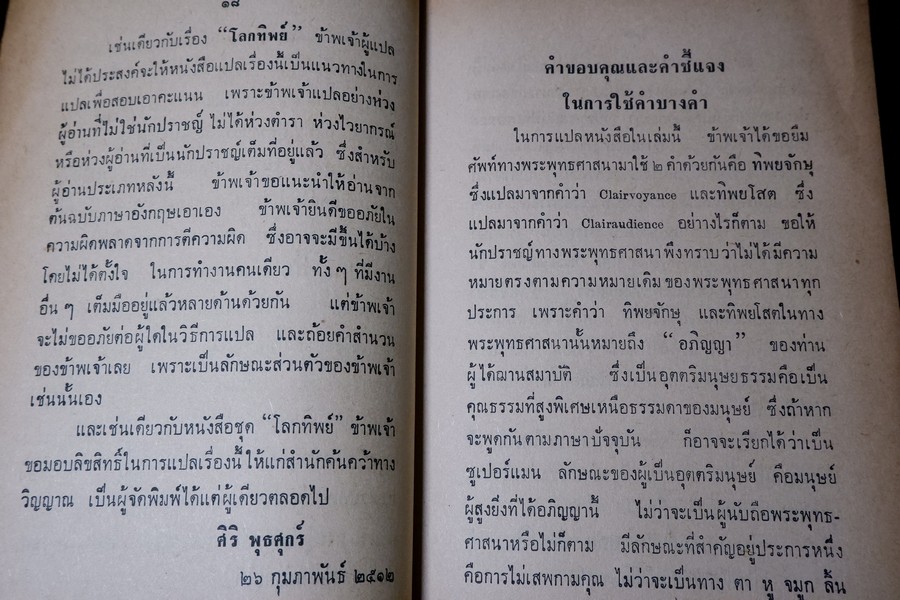 ๑๘
เช่นเดียวกับเรื่อง “โลกทิพย์” ข้าพเจ้าผู้แปล
ไม่ได้ประสงค์จะให้หนังสือแปลเรื่องนี้เป็นแนวทางในการ
แปลเพื่อสอบเอาคะแนน เพราะข้าพเจ้าแปลอย่างห่วง
ผู้อ่านที่ไม่ใช่นักปราชญ์ ไม่ได้ห่วงตำรา ห่วงไวยากรณ์
หรือห่วงผู้อ่านที่เป็นนักปราชญ์เต็มที่อยู่แล้ว ซึ่งสำหรับ
ผู้อ่านประเภทหลังนี้ ข้าพเจ้าขอแนะนำให้อ่านจาก
ต้นฉบับภาษาอังกฤษเอาเอง ข้าพเจ้ายินดีขออภัยใน
ความผิดพลาดจากการตีความผิด ซึ่งอาจจะมีขึ้นได้บ้าง
โดยไม่ได้ตั้งใจ ในการทำงานคนเดียว ทั้ง ๆ ที่มีงาน
อื่น ๆ เต็มมืออยู่แล้วหลายด้านด้วยกัน แต่ข้าพเจ้า
จะไม่ขออภัยต่อผู้ใดในวิธีการแปล และถ้อยคำสำนวน
ของข้าพเจ้าเลย เพราะเป็นลักษณะส่วนตัวของข้าพเจ้า
เช่นนั้นเอง
และเช่นเดียวกับหนังสือชุด “โลกทิพย์” ข้าพเจ้า
ขอมอบลิขสิทธิ์ในการแปลเรื่องนี้ ให้แก่สำนักค้นคว้าทาง
วิญญาณ เป็นผู้จัดพิมพ์ได้แต่ผู้เดียวตลอดไป
ศิริ พุธศุกร์
๒๖ กุมภาพันธ์ ๒๕๑๒
คำขอบคุณและคำชี้แจง
ในการใช้คำบางคำ
ในการแปลหนังสือในเล่มนี้ ข้าพเจ้าได้ขอยืม
ศัพท์ทางพระพุทธศาสนามาใช้ ๒ คำด้วยกันคือ ทิพยจักษุ
ซึ่งแปลมาจากคำว่า Clairvoyance และทิพยโสต ซึ่ง
แปลมาจากคำว่า Clairaudience อย่างไรก็ตาม ขอให้
นักปราชญ์ทางพระพุทธศาสนาพึงทราบว่าไม่ได้มีความ
หมายตรงตามความหมายเดิมของพระพุทธศาสนาทุก
ประการ เพราะคำว่า ทิพยจักษุ และทิพยโสตในทาง
พระพุทธศาสนานั้นหมายถึง “อภิญญา” ของท่าน
ผู้ได้ฌานสมาบัติ ซึ่งเป็นอุตตริมนุษยธรรมคือเป็น
คุณธรรมที่สูงพิเศษเหนือธรรมดาของมนุษย์ ซึ่งถ้าหาก
จะพูดกันตามภาษาปัจจุบัน ก็อาจจะเรียกได้ว่าเป็น
ซูเปอร์แมน ลักษณะของผู้เป็นอุตตริมนุษย์ คือมนุษย์
ผู้สูงยิ่งที่ได้อภิญญานี้ ไม่ว่าจะเป็นผู้นับถือพระพุทธ-
ศาสนาหรือไม่ก็ตาม มีลักษณะที่สำคัญอยู่ประการหนึ่ง
คือการไม่เสพกามคุณ ไม่ว่าจะเป็นทาง ตา หู จมูก ลิ้น